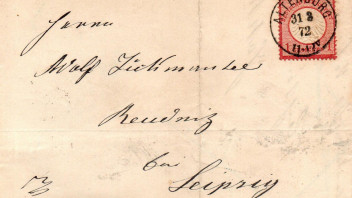 Herrn
Adolf Zickmantel
Reudnitz
bei
Leipzig
ALTENBURG
31 3
72